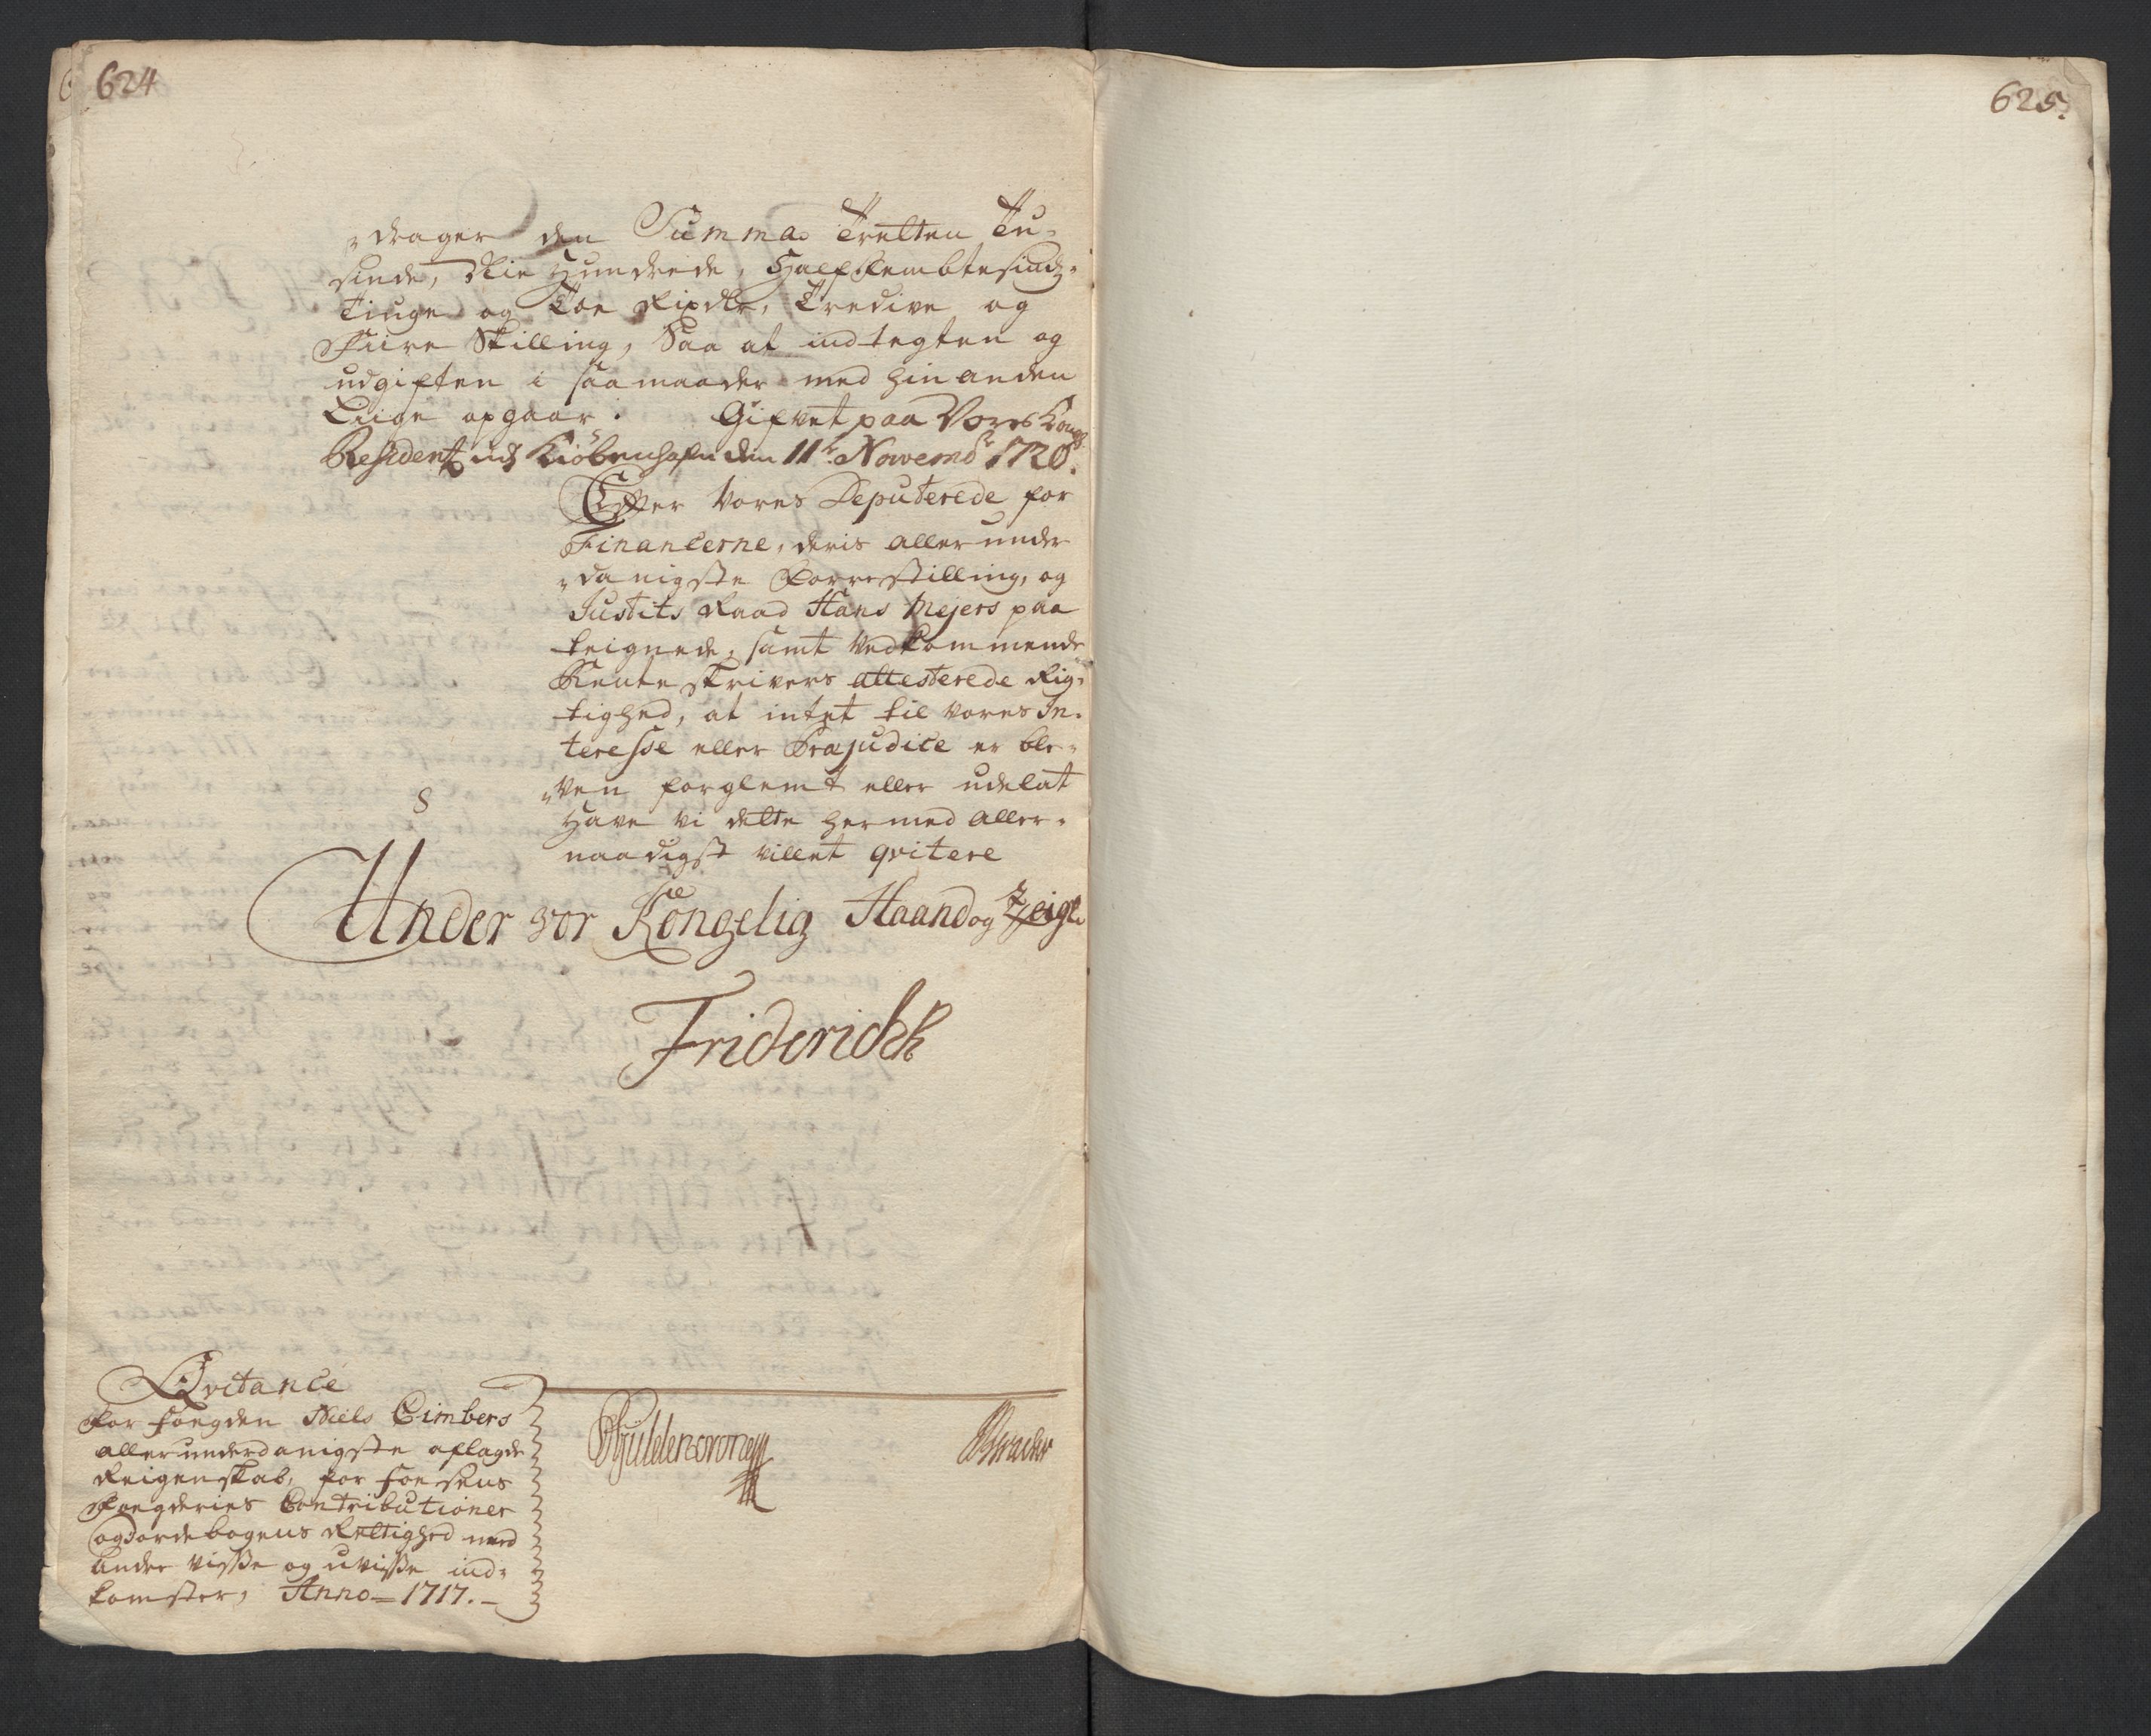 624
drager den Summa Tretten Tu-
sinde, Nie Hundrede, Halffembtesindz-
Tiuge og Toe Rixdlr, Tredive og
Fiire Skilling, Saa at indtegten og
udgiften i saa maader med hin anden
Liige opgaar. Gifvet paa Vores Kongl.
Residentz udj Kiöbenhafn den 11te Novembr 1720.
Efter Vores Deputerede for
Financerne, deris aller under
danigste Forrestilling, og
Justits Raad Hans Mejers paa
teignede, samt vedkommende
Renteskrivers attesterede Rig-
tighed, at intet til vores In-
teresse eller Præjudice er ble-
ven forglemt eller udelat
Have vi dette hermed aller-
naadigst villet qvitere
S
Under vor Kongelig Haand og Zeigl.
Friderich R
Qvitance
for fougden Niels Cimbers
allerunderdanigste aflagde
Reigenskab, for Foesens
Fougderies Contributioner
og Jordebogens Rettighed med
andre visse og uvisse ind-
komster, Anno 1717.
Gyldencrone
625.